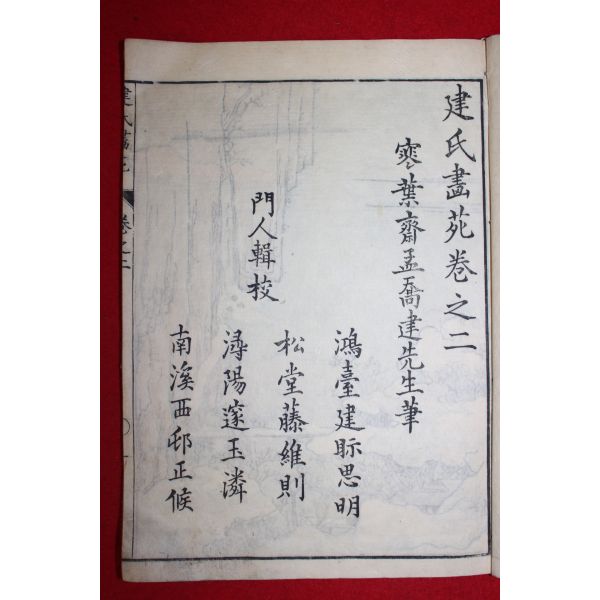 建氏畵苑卷之二
寒葉齋孟喬建先生筆
門人輯校
鴻臺建眎思明
松堂藤維則
潯陽邃玉潾
南溪西邨正候
建氏畵苑
卷之二